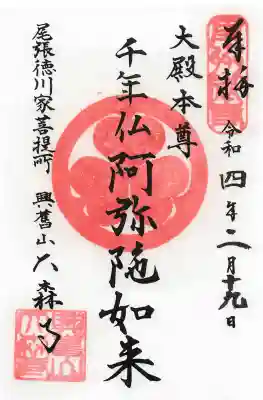 奉拝
令和四年二月十九日
大殿本尊
千年仏阿弥陀如来
尾張徳川家菩提所 興旧山大森寺